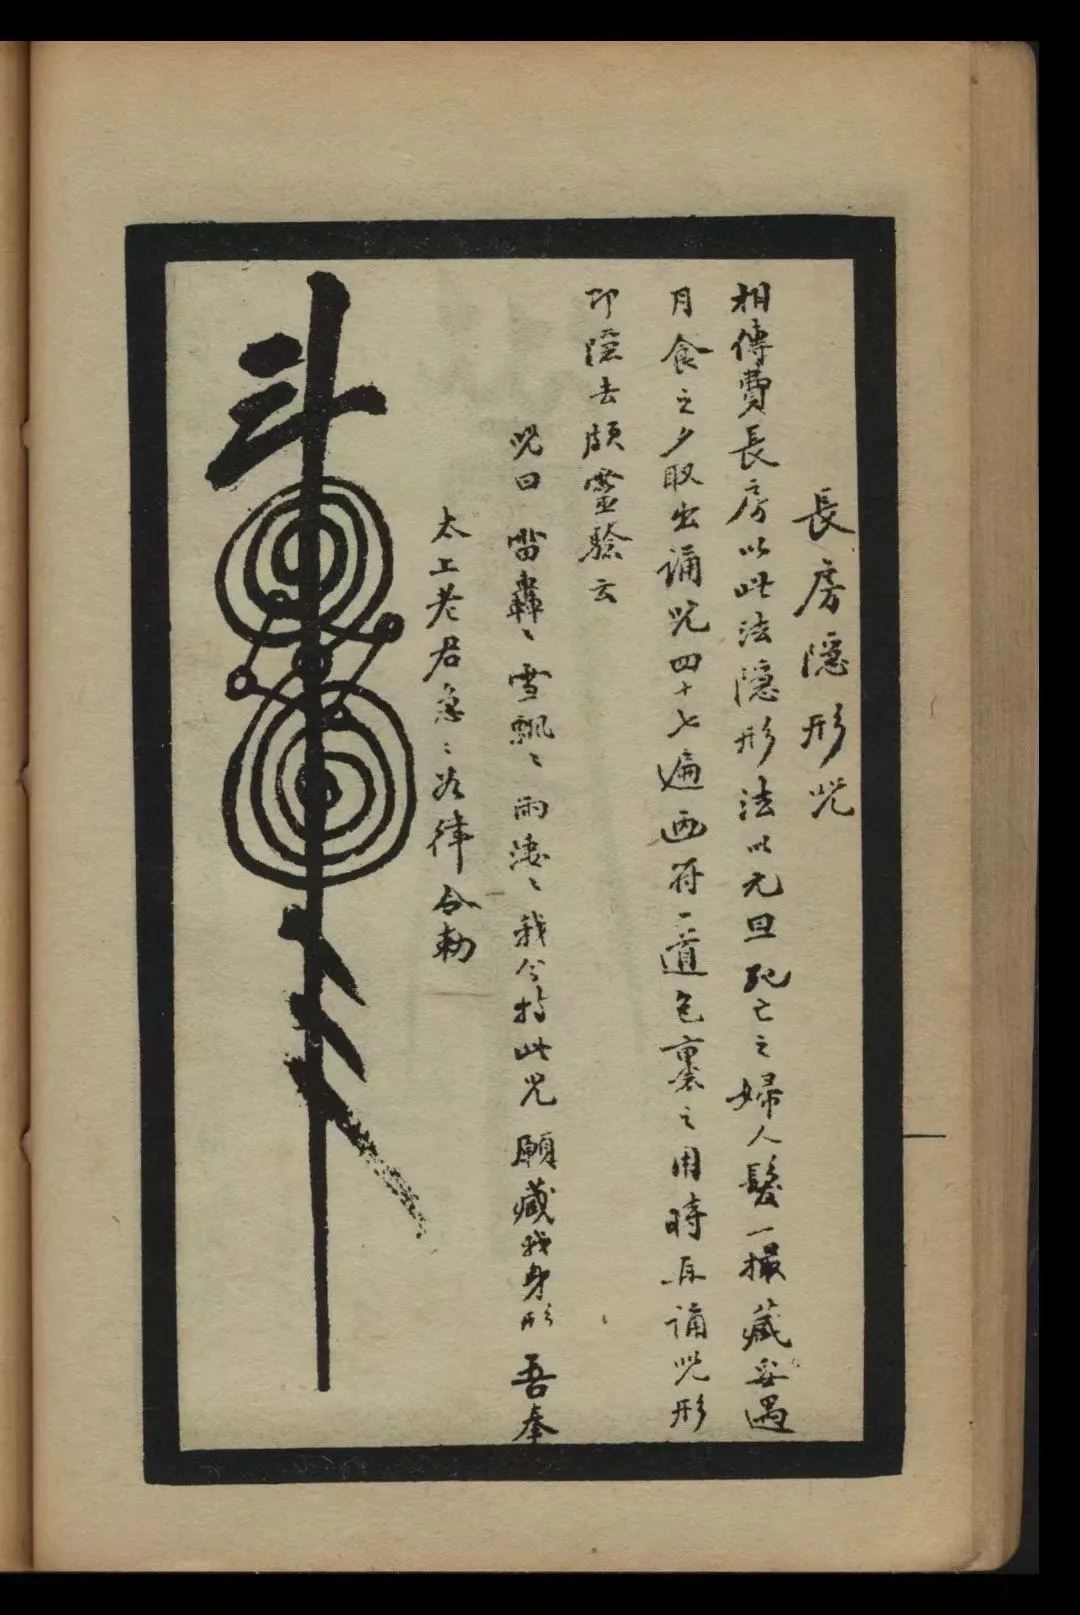 長房隱形咒
相傳費長房以此法隱形法以元旦死亡之婦人髮一撮藏妥遇
月食之夕取出誦咒四十七遍画符一道包裹之用時再誦咒形
即隱去頗靈驗云
咒曰 雷轟〻雪飄〻雨淒〻我今持此咒願藏我身形 吾奉
太上老君急〻如律令勅
斗